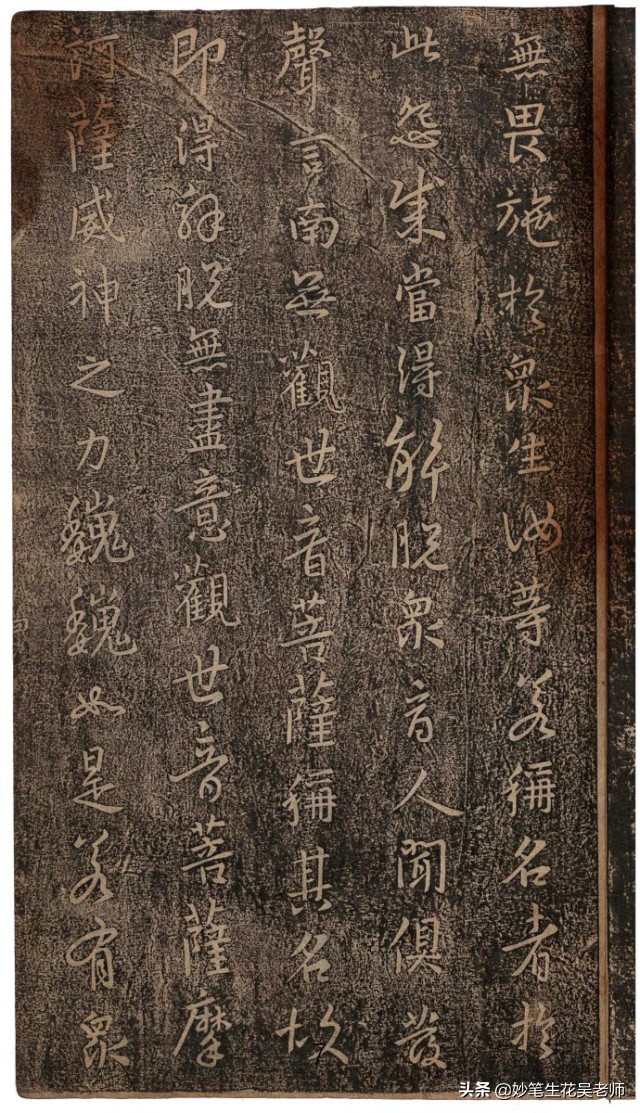 無畏施於眾生汝等若稱名者於
此怨賊當得解脫眾商人聞俱發
聲言南無觀世音菩薩稱其名故
即得解脫無盡意觀世音菩薩摩
訶薩威神之力巍巍如是若有眾
头条 @妙笔生花吴老师